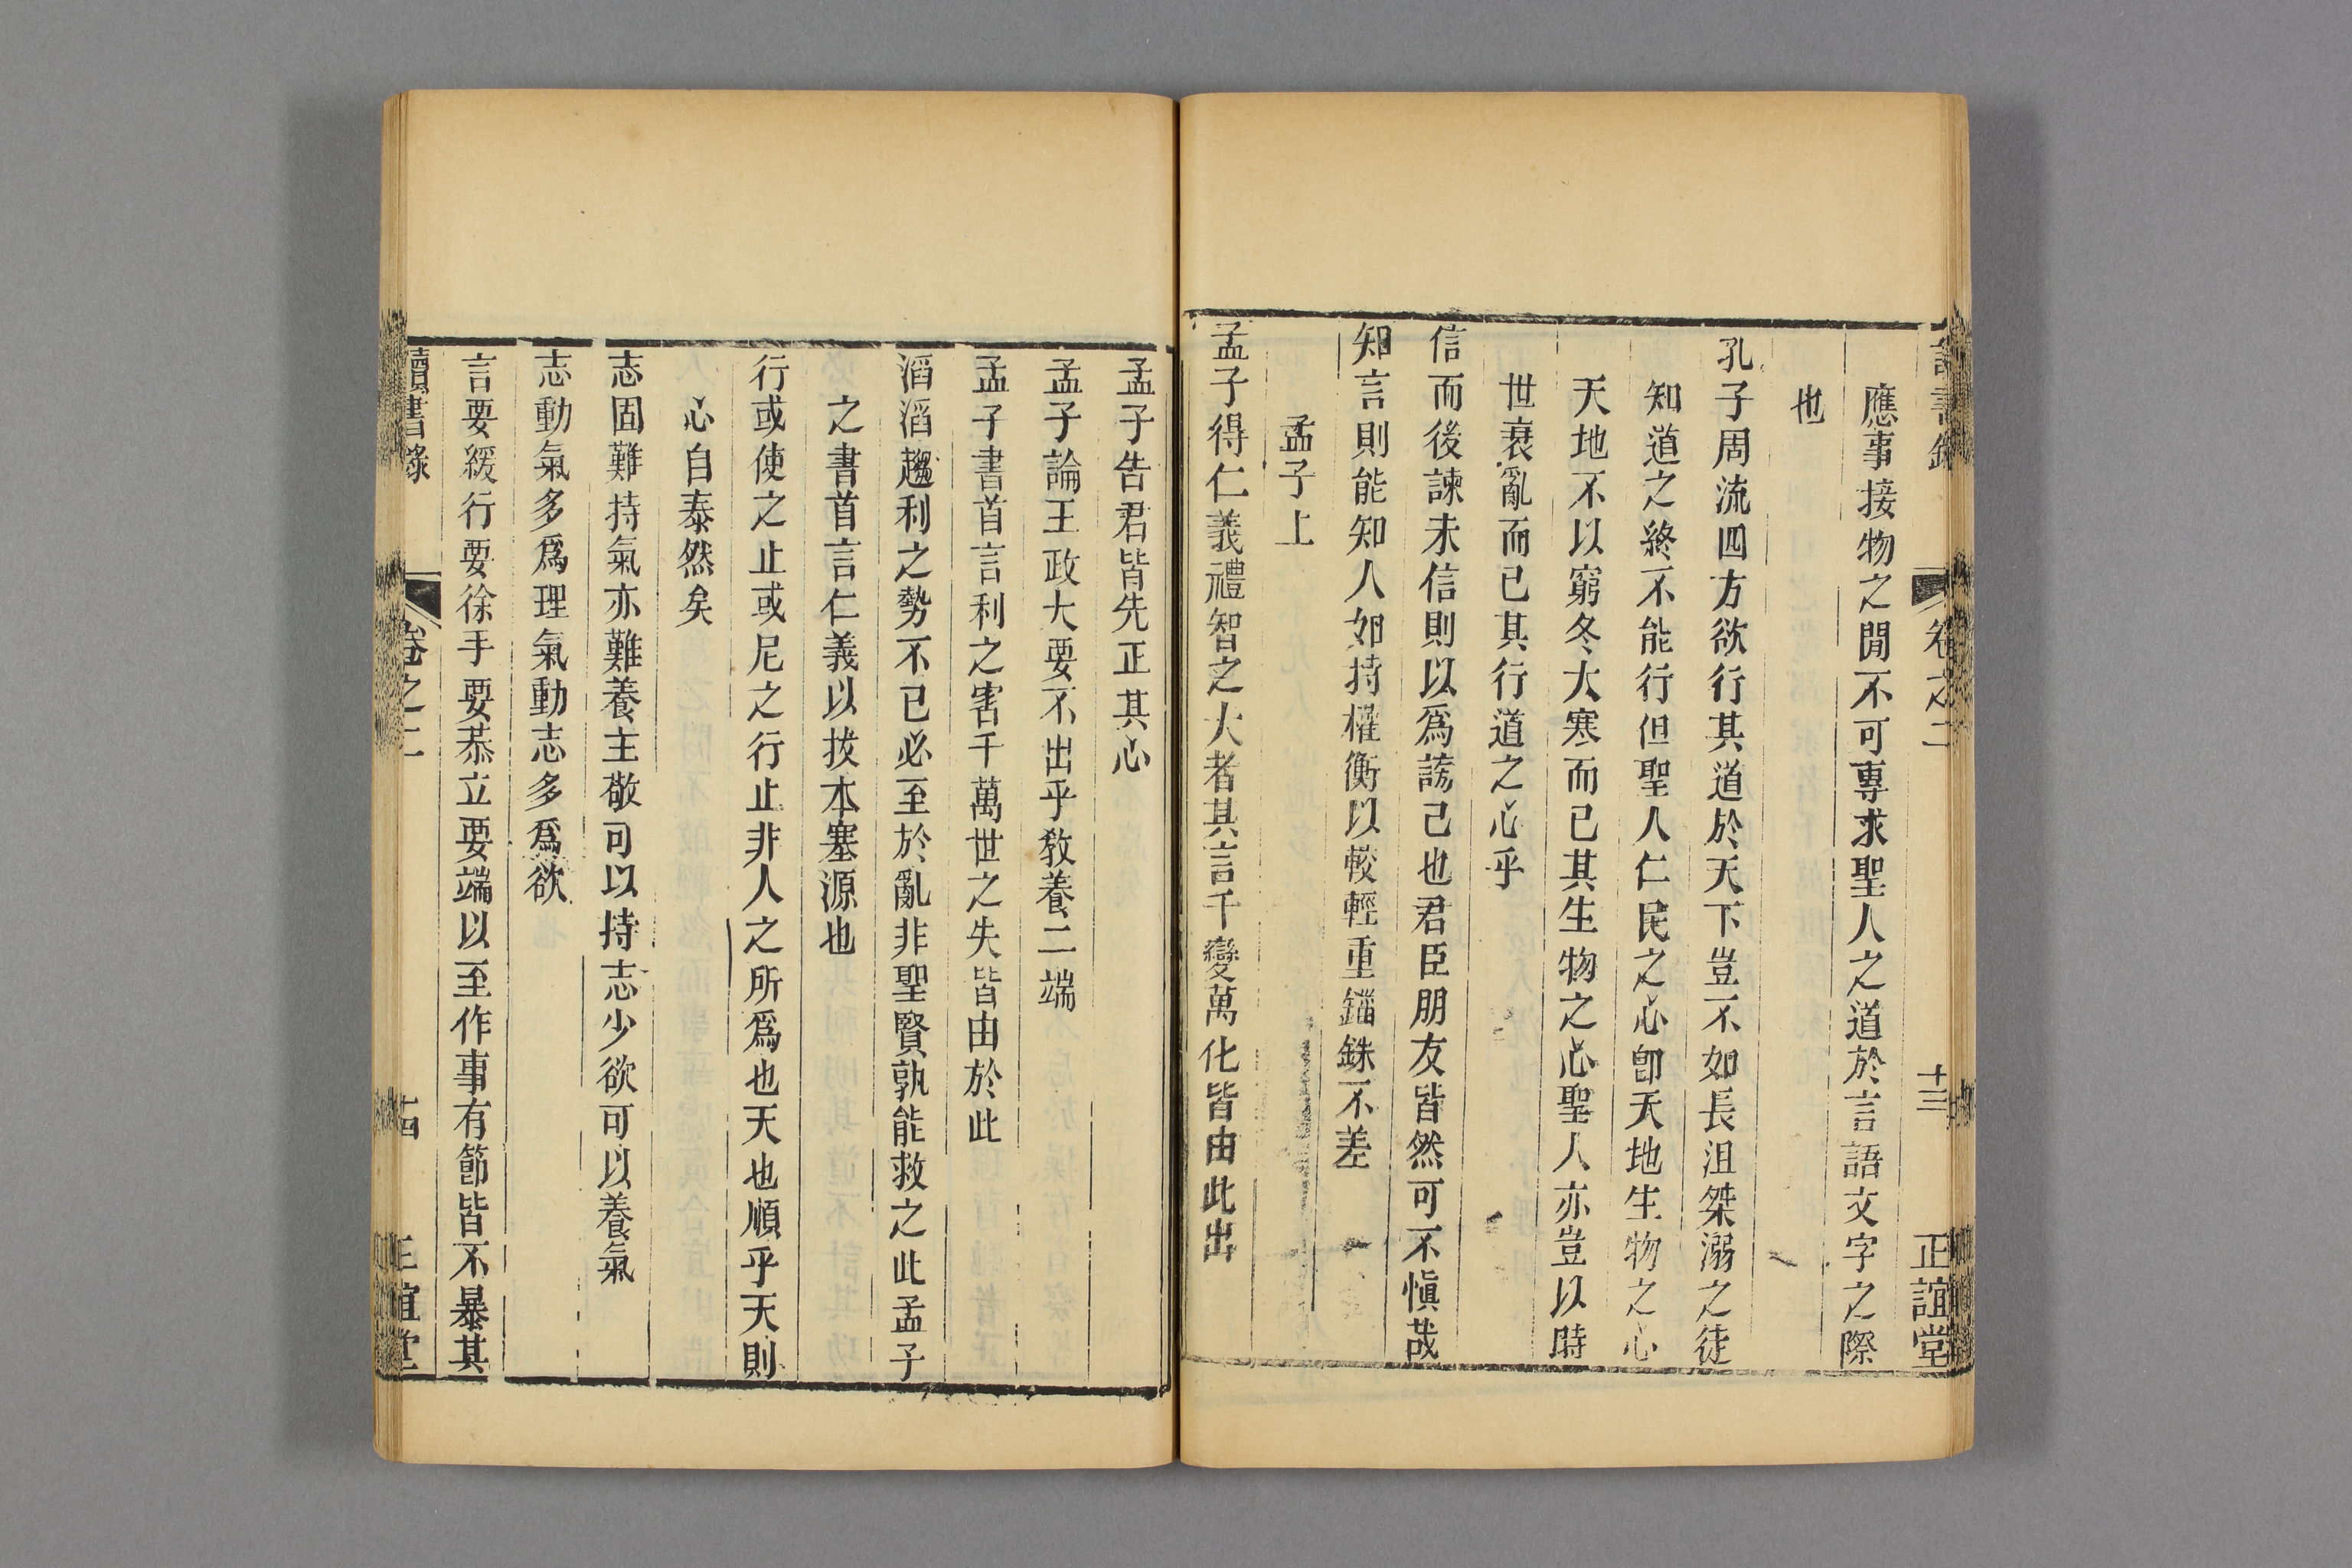 讀書錄 卷之二 十三 正誼堂
應事接物之閒不可專求聖人之道於言語文字之際
也
孔子周流四方欲行其道於天下豈不如長沮桀溺之徒
知道之終不能行但聖人仁民之心卽天地生物之心
天地不以窮冬大寒而已其生物之心聖人亦豈以時
世衰亂而已其行道之心乎
信而後諫未信則以爲謗己也君臣朋友皆然可不愼哉
知言則能知人如持權衡以較輕重錙銖不差
孟子上
孟子得仁義禮智之大者其言千變萬化皆由此出
孟子告君皆先正其心
孟子論王政大要不出乎敎養二端
孟子書首言利之害千萬世之失皆由於此
滔滔趨利之勢不已必至於亂非聖賢孰能救之此孟子
之書首言仁義以拔本塞源也
行或使之止或尼之行止非人之所爲也天也順乎天則
心自泰然矣
志固難持氣亦難養主敬可以持志少欲可以養氣
志動氣多爲理氣動志多爲欲
言要緩行要徐手要恭立要端以至作事有節皆不暴其
讀書錄 卷之二 十四 正誼堂